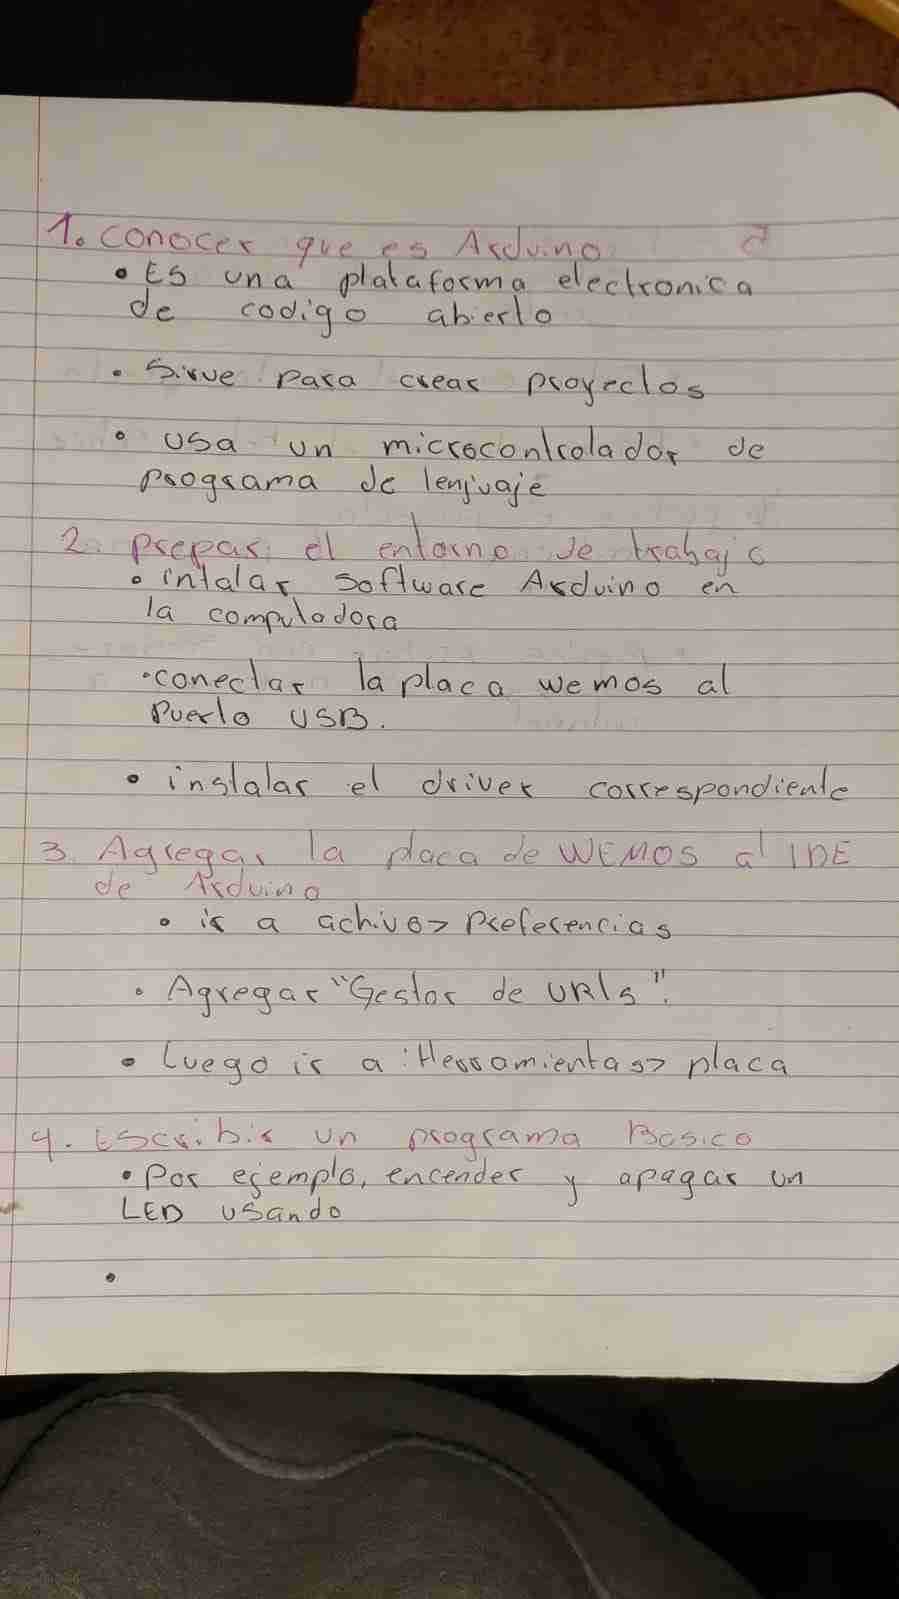 1. Conocer que es Arduino
• Es una plataforma electronica
de codigo abierto
• Sirve para crear proyectos
• Usa un microcontrolador de
programa de lenjuaje
2. prepar el entorno de trabajo
• intalar software Arduino en
la computadora
• conectar la placa wemos al
puerto USB.
• instalar el driver correspondiente
3. Agregar la placa de WEMOS al IDE
de Arduino
• ir a achivo> Preferencias
• Agregar "Gestor de URls".
• Luego ir a : Herramientas> placa
4. Escribir un programa Basico
• Por ejemplo, encender y apagar un
LED usando
•